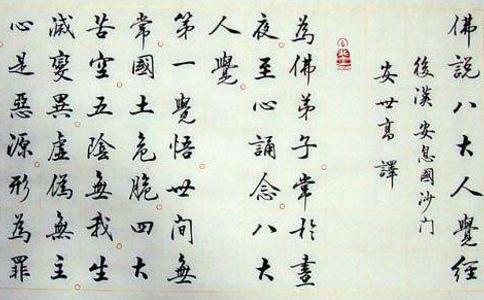 佛說八大人覺經
後漢安息國沙门
安世高譯
為佛弟子常於晝
夜至心誦念八大
人覺
第一覺悟世間無
常國土危脆四大
苦空五陰無我生
滅變異虛偽無主
心是惡源形為罪